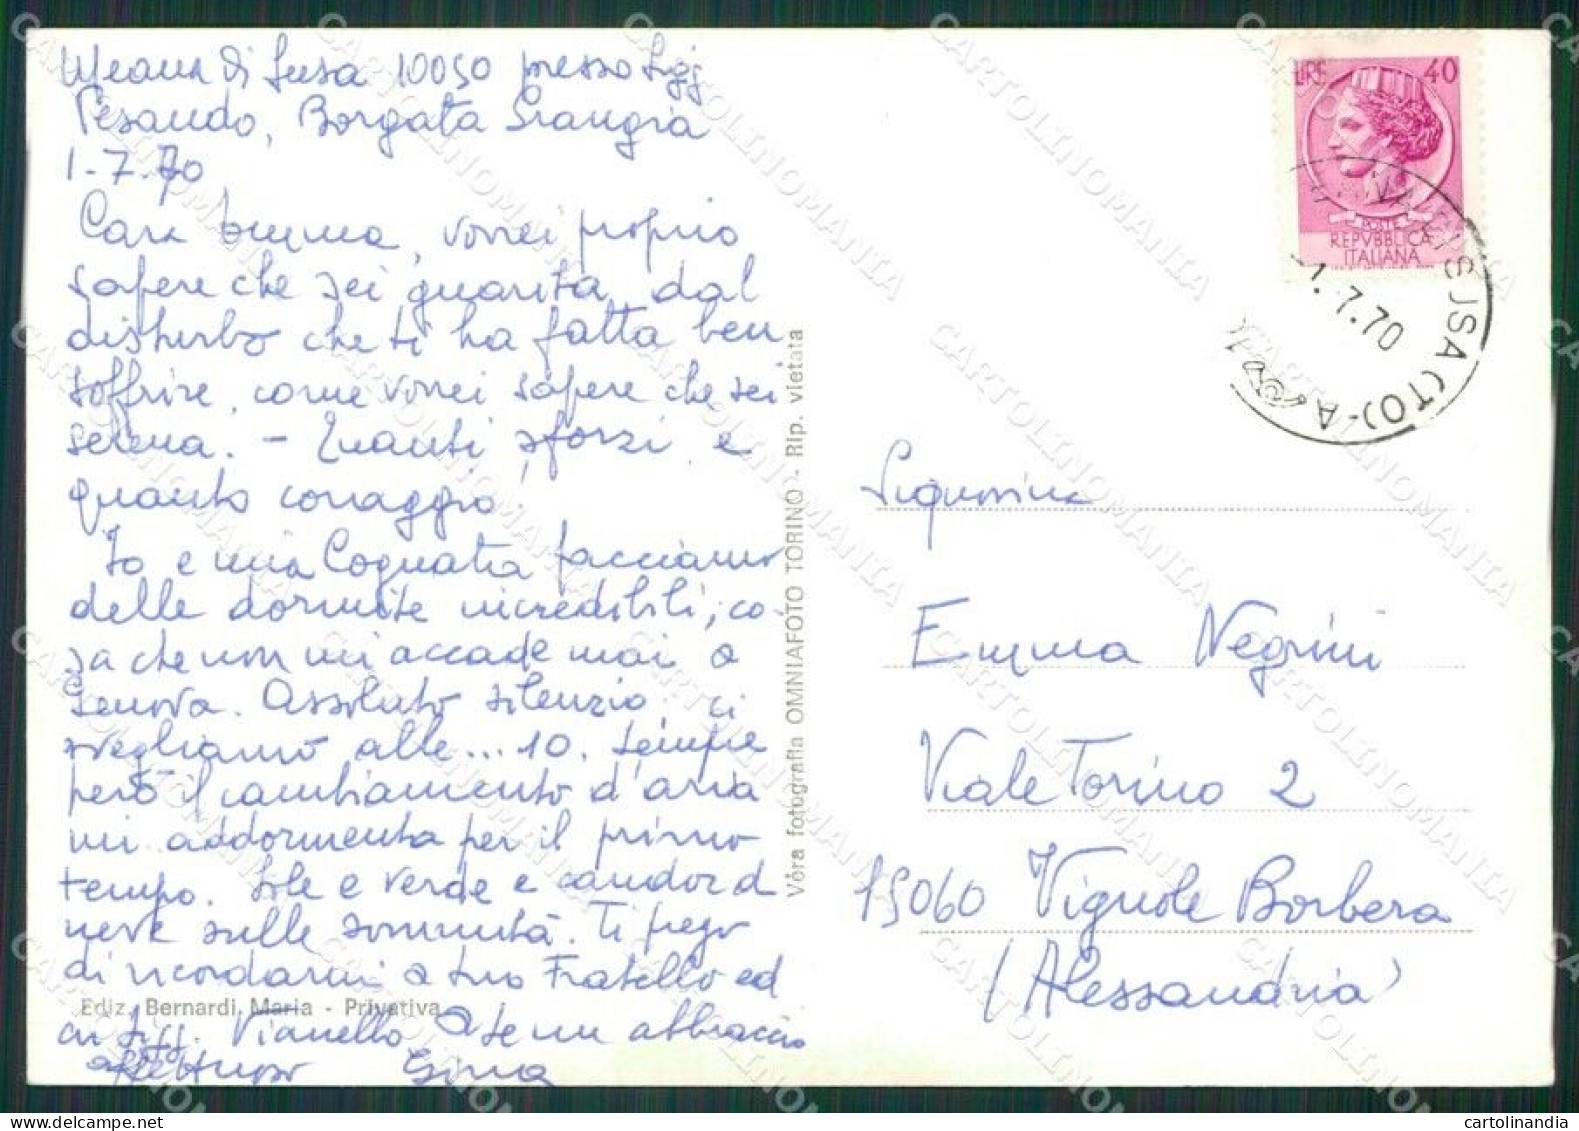 Meana di Susa 10050 presso Sigg
Pesando, Borgata Srangia
1-7-70
Cara Emma, vorrei proprio
sapere che sei guarita dal
disturbo che ti ha fatta ben
soffrire, come vorrei sapere che sei
serena. - Quanti sforzi e
quanto coraggio!
Io e mia Cognata facciamo
delle dormite incredibili, co-
sa che non mi accade mai a
Genova. Assoluto silenzio, ci
svegliamo alle... 10. Sempre
però il cambiamento d'aria
mi addormenta per il primo
tempo. Sole e verde e candor d
neve sulle sommità. Ti prego
di ricordarmi a tuo Fratello ed
ai Sigg. Vianello. A te un abbraccio
affettuoso Gina
Ediz. Bernardi Maria - Privativa
Vera fotografia OMNIAFOTO TORINO - Rip. vietata
LIRE 40
POSTE
REPVBBLICA
ITALIANA
1.7.70
SUSA (TO)-A
Signorina
Emma Negrini
Viale Torino 2
15060 Vignole Borbera
(Alessandria)
CARTOLINOMANIA
cartolinandia